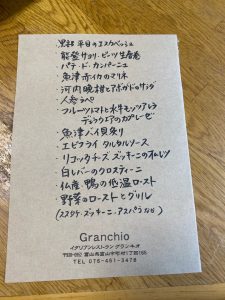 ・黒部 平目のエスカベッシュ
・能登サヨリ・ビーツ生春巻
・パテ・ド・カンパーニュ
・魚津赤イカのマリネ
・河内晩柑とアボガドのサラダ
・人参ラペ
・フルーツトマトと水牛モッツァレラ
のカプレーゼ
・魚津バイ貝煮り
・エビフライ タルタルソース
・リコッタチーズ ズッキーニのオムレツ
・白レバーのクロスティーニ
・仏産 鴨の低温ロースト
・野菜のローストとグリル
(ズッキーニ、アスパラなど)
Granchio
イタリアンレストラン グランキオ
TEL 076-451-3478